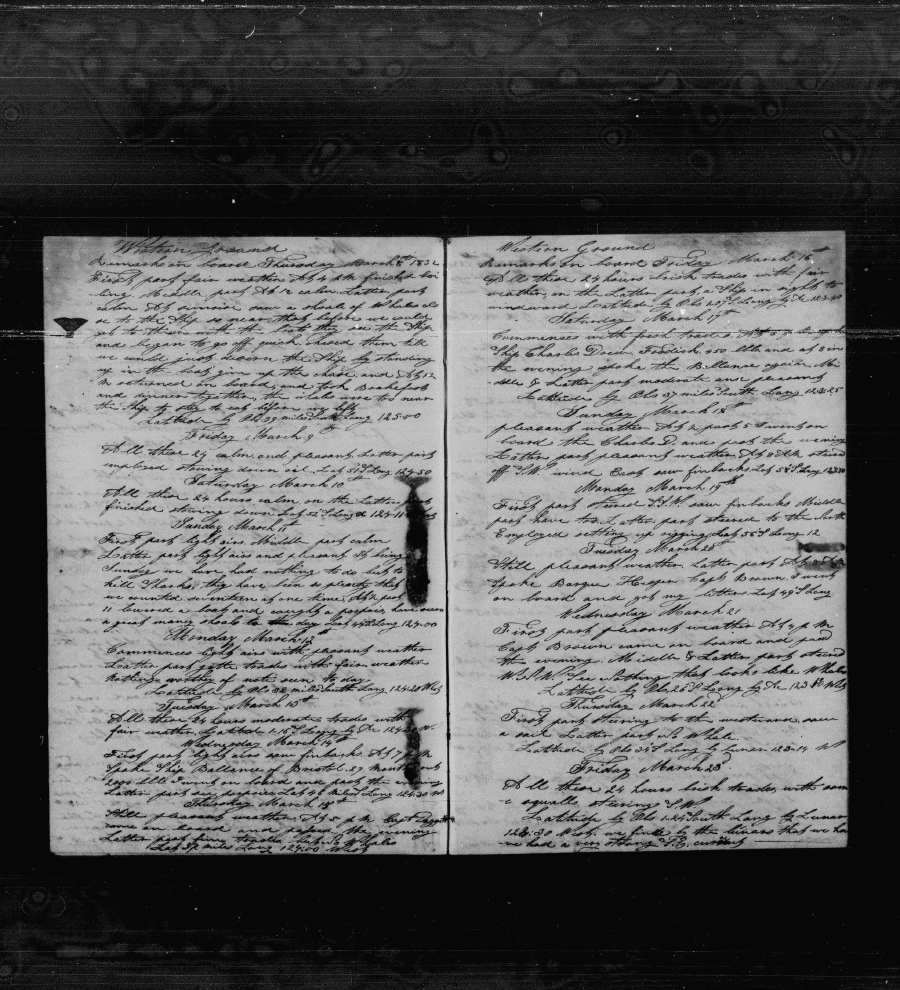 Western Ground
Remarks on board Thursday March 8th 1832
First part fair weather At 6 PM finished boi
-ling. Middle part At 12 calm Latter part
calm At sunrise saw a shoal of Whales
to the Ship we before we could
get to them with the boats they see the Ship
and began to go off quick chased them till
we could just discern the Ship by standing
up in the boat give up the chase and At 12
M returned on board and took Breakfast
and dinner together, the whales were too near
the Ship to stay to eat before we left
Latitude by Obs 39 miles South Long 125-00
Friday March 9
All these 24 calm and pleasant, Latter part
employed stowing down oil. Lat 51 S Long 124-50
Saturday March 10th
All these 24 hours calm on the Latter part
finished stowing down Lat 52 S Long 124-11
Sunday March 11th
First part light airs Middle part calm
Latter part light airs and pleasant It being
Sunday we have had nothing to do but to
kill Sharks they have been so plenty that
we counted seventeen at one time, At 2 part
11 lowered a boat and caught a porpois, have seen
a great many shoals to the day Lat 44 S Long 124-00
Monday March 12th
Commences light airs with pleasant weather
Latter part gentle trades with fair weather
Nothing worthy of note seen to day
Latitude by Obs 32 miles South Long 124-20 West
Tuesday March 13th
All these 24 hours moderate trades with
fair weather Latitude 1-16 S Long by
Wednesday March 14th
First part light airs saw finbacks At 7 AM
Spoke Ship Ballance of Bristol 27 Months out
Bbls I went on board and past the evening
Latter part saw popoises Lat 46 miles S Long 124-30 W
Thursday March 15th
Still pleasant weather At 5 P M Capt Daggett
came on board and passed the evening
Latter part fine trades but no Whales
Lat 37 miles Long 124-00 West
Western Ground
Remarks on board Friday March 16th
All these 24 hours brisk trades with fair
weather, in the Latter part a Ship in sight to
windward Latitude by Obs 1-07 S Long by
Saturday March 17th
Commences with fresh trades. At 3 P M spoke
Ship Charles Drew Fosdick 450 bbls and at 8 in
the evening spoke the Ballance again, Mi-
ddle & Latter part moderate and pleasant
Latitude by Obs 37 miles South Long 123-25
Sunday March 18th
pleasant weather At 2 past 5 I went on
board the Charles D. and past the evening
Latter part pleasant weather, At 9 AM steered
off S.W. wind East saw finbacks. Lat 58 S Long
Monday March 19th
First part steered S.S.W. saw finbacks Middle
part have to, Latter part steered to the South
Employed setting up rigging Lat 56 S Long 12
Tuesday March 20th
Still pleasant weather Latter part At
Spoke Barque Hesper Capt Brown I went
on board and got my letters Lat 49 S Long
Wednesday March 21
First part pleasant weather At 4 P M
Capt Brown came on board and past
the evening. Middle & Latter part steered
W.S.W. See Nothing that looks like Whales
Latitude by Obs 26 S Long by 123
Thursday March 22d
First part steering to the westward, saw
a sail Latter part No Whale
Latitude by Obs 34 S Long by Lunar 123-14 W
Friday March 23d
All these 24 hours brisk trades, with som
-e squalls steering S.W.
Latitude by Obs 1-24 South Long by Lunar
123-30 West. we find by the lunars that we ha
-ve had a very strong S.E. current